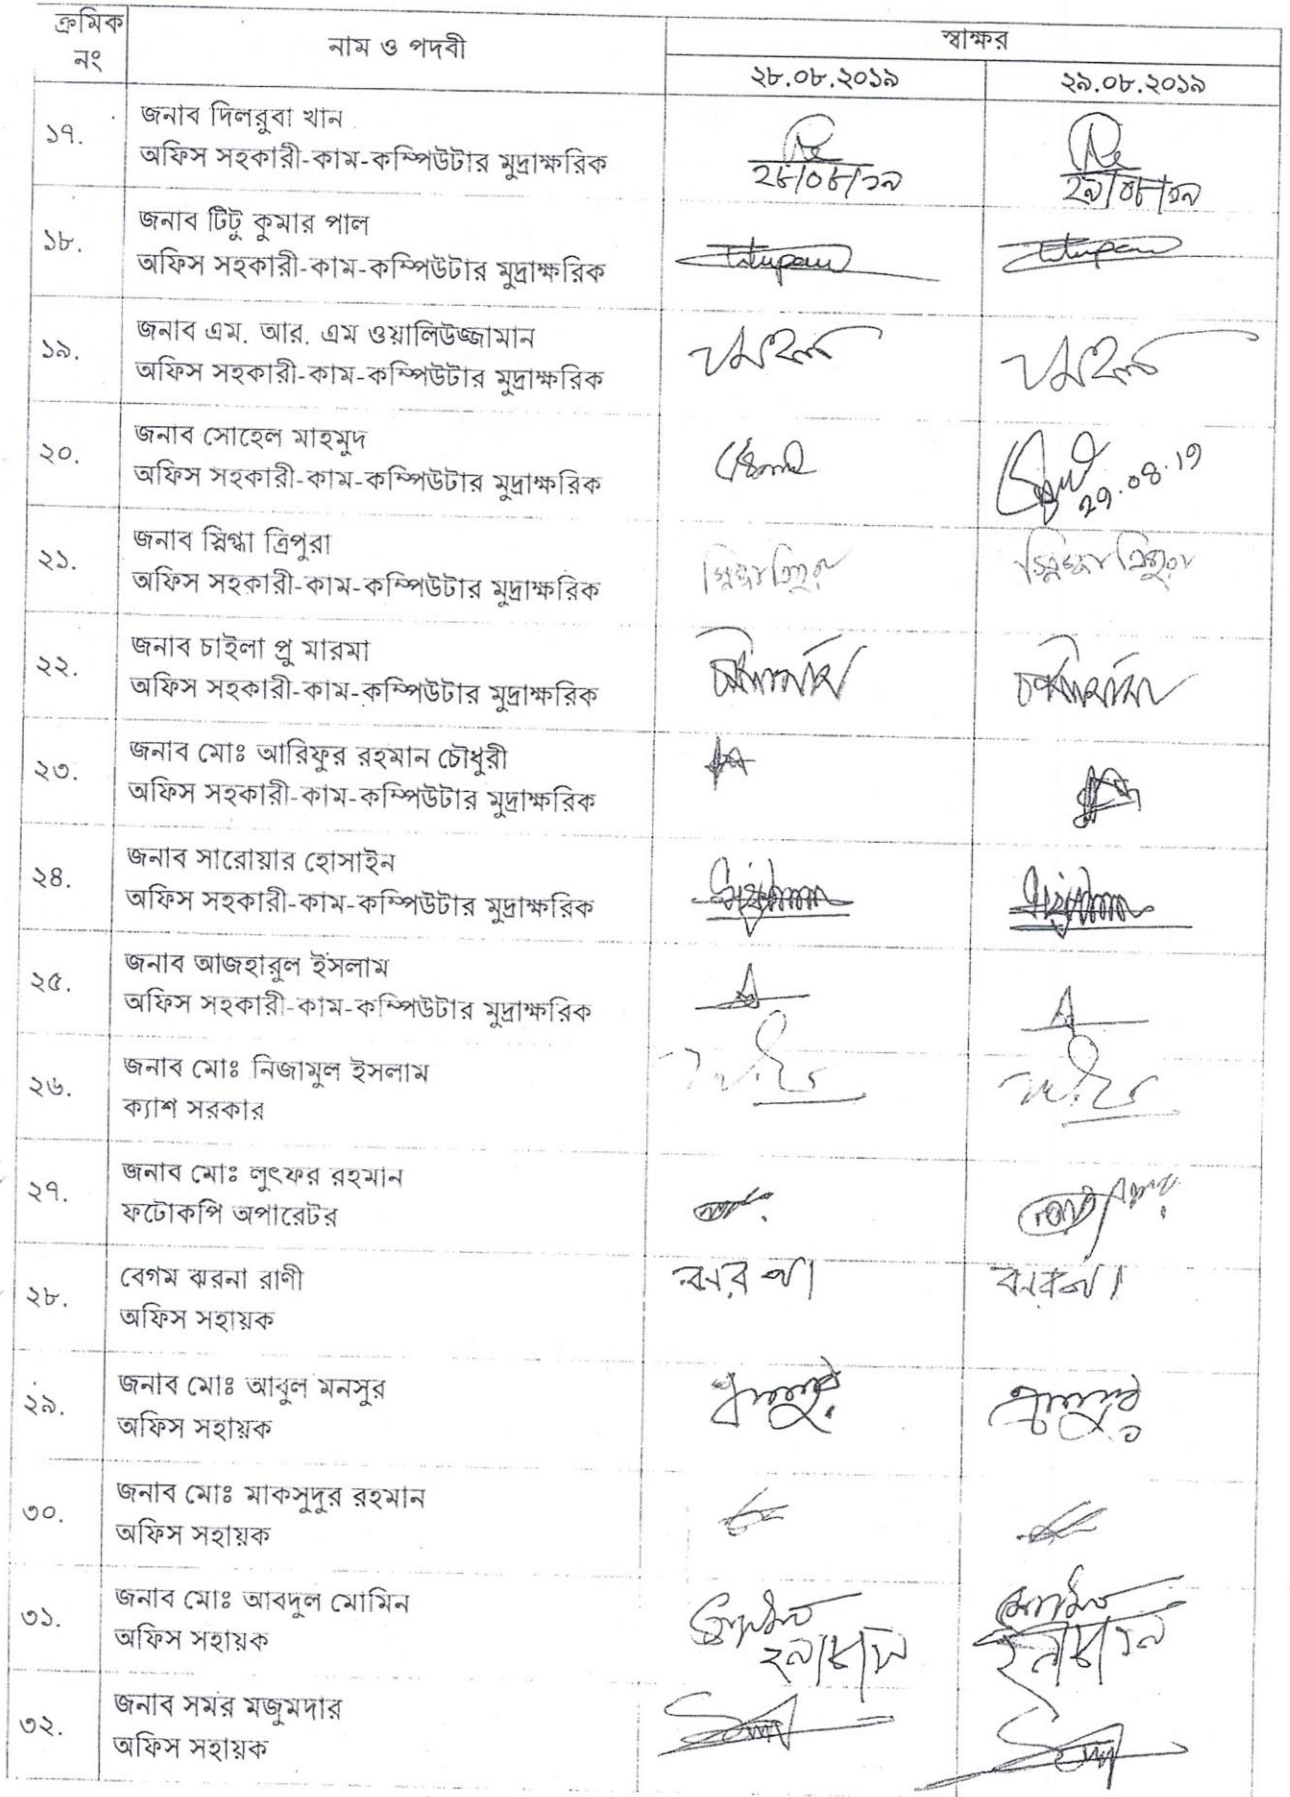 ক্রমিক নং
নাম ও পদবী
স্বাক্ষর
২৮.০৮.২০১৯
২৯.০৮.২০১৯
১৭.
জনাব দিলরুবা খান
অফিস সহকারী-কাম-কম্পিউটার মুদ্রাক্ষরিক
২৮/০৮/১৯
২৯/০৮/১৯
১৮.
জনাব টিটু কুমার পাল
অফিস সহকারী-কাম-কম্পিউটার মুদ্রাক্ষরিক
১৯.
জনাব এম. আর. এম ওয়ালিউজ্জামান
অফিস সহকারী-কাম-কম্পিউটার মুদ্রাক্ষরিক
২০.
জনাব সোহেল মাহমুদ
অফিস সহকারী-কাম-কম্পিউটার মুদ্রাক্ষরিক
২১.
জনাব স্নিগ্ধা ত্রিপুরা
অফিস সহকারী-কাম-কম্পিউটার মুদ্রাক্ষরিক
স্নিগ্ধা ত্রিপুরা
স্নিগ্ধা ত্রিপুরা
২২.
জনাব চাইলা প্রু মারমা
অফিস সহকারী-কাম-কম্পিউটার মুদ্রাক্ষরিক
২৩.
জনাব মোঃ আরিফুর রহমান চৌধুরী
অফিস সহকারী-কাম-কম্পিউটার মুদ্রাক্ষরিক
২৪.
জনাব সারোয়ার হোসাইন
অফিস সহকারী-কাম-কম্পিউটার মুদ্রাক্ষরিক
২৫.
জনাব আজহারুল ইসলাম
অফিস সহকারী-কাম-কম্পিউটার মুদ্রাক্ষরিক
২৬.
জনাব মোঃ নিজামুল ইসলাম
ক্যাশ সরকার
২৭.
জনাব মোঃ লুৎফর রহমান
ফটোকপি অপারেটর
২৮.
বেগম ঝরনা রাণী
অফিস সহায়ক
ঝরনা
ঝরনা
২৯.
জনাব মোঃ আবুল মনসুর
অফিস সহায়ক
৩০.
জনাব মোঃ মাকসুদুর রহমান
অফিস সহায়ক
৩১.
জনাব মোঃ আবদুল মোমিন
অফিস সহায়ক
৩২.
জনাব সমর মজুমদার
অফিস সহায়ক